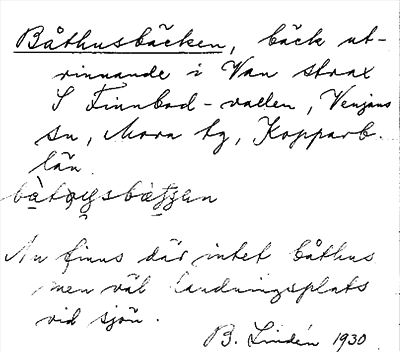 Båthusbäcken, bäck ut-
rinnande i Van strax
S Finnbod-vallen, Venjans
sn, Mora tg, Kopparb.
län.
Nu finns där intet båthus
men väl landningsplats
vid sjön.
B. Lindén 1930